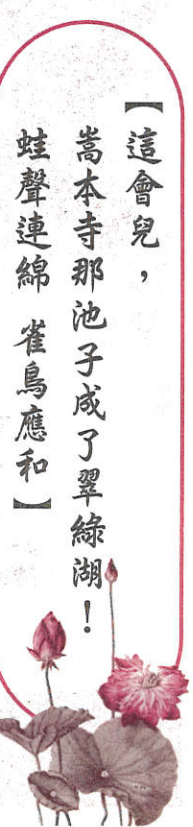 【這會兒，
嵩本寺那池子成了翠綠湖！
蛙聲連綿 雀鳥應和】